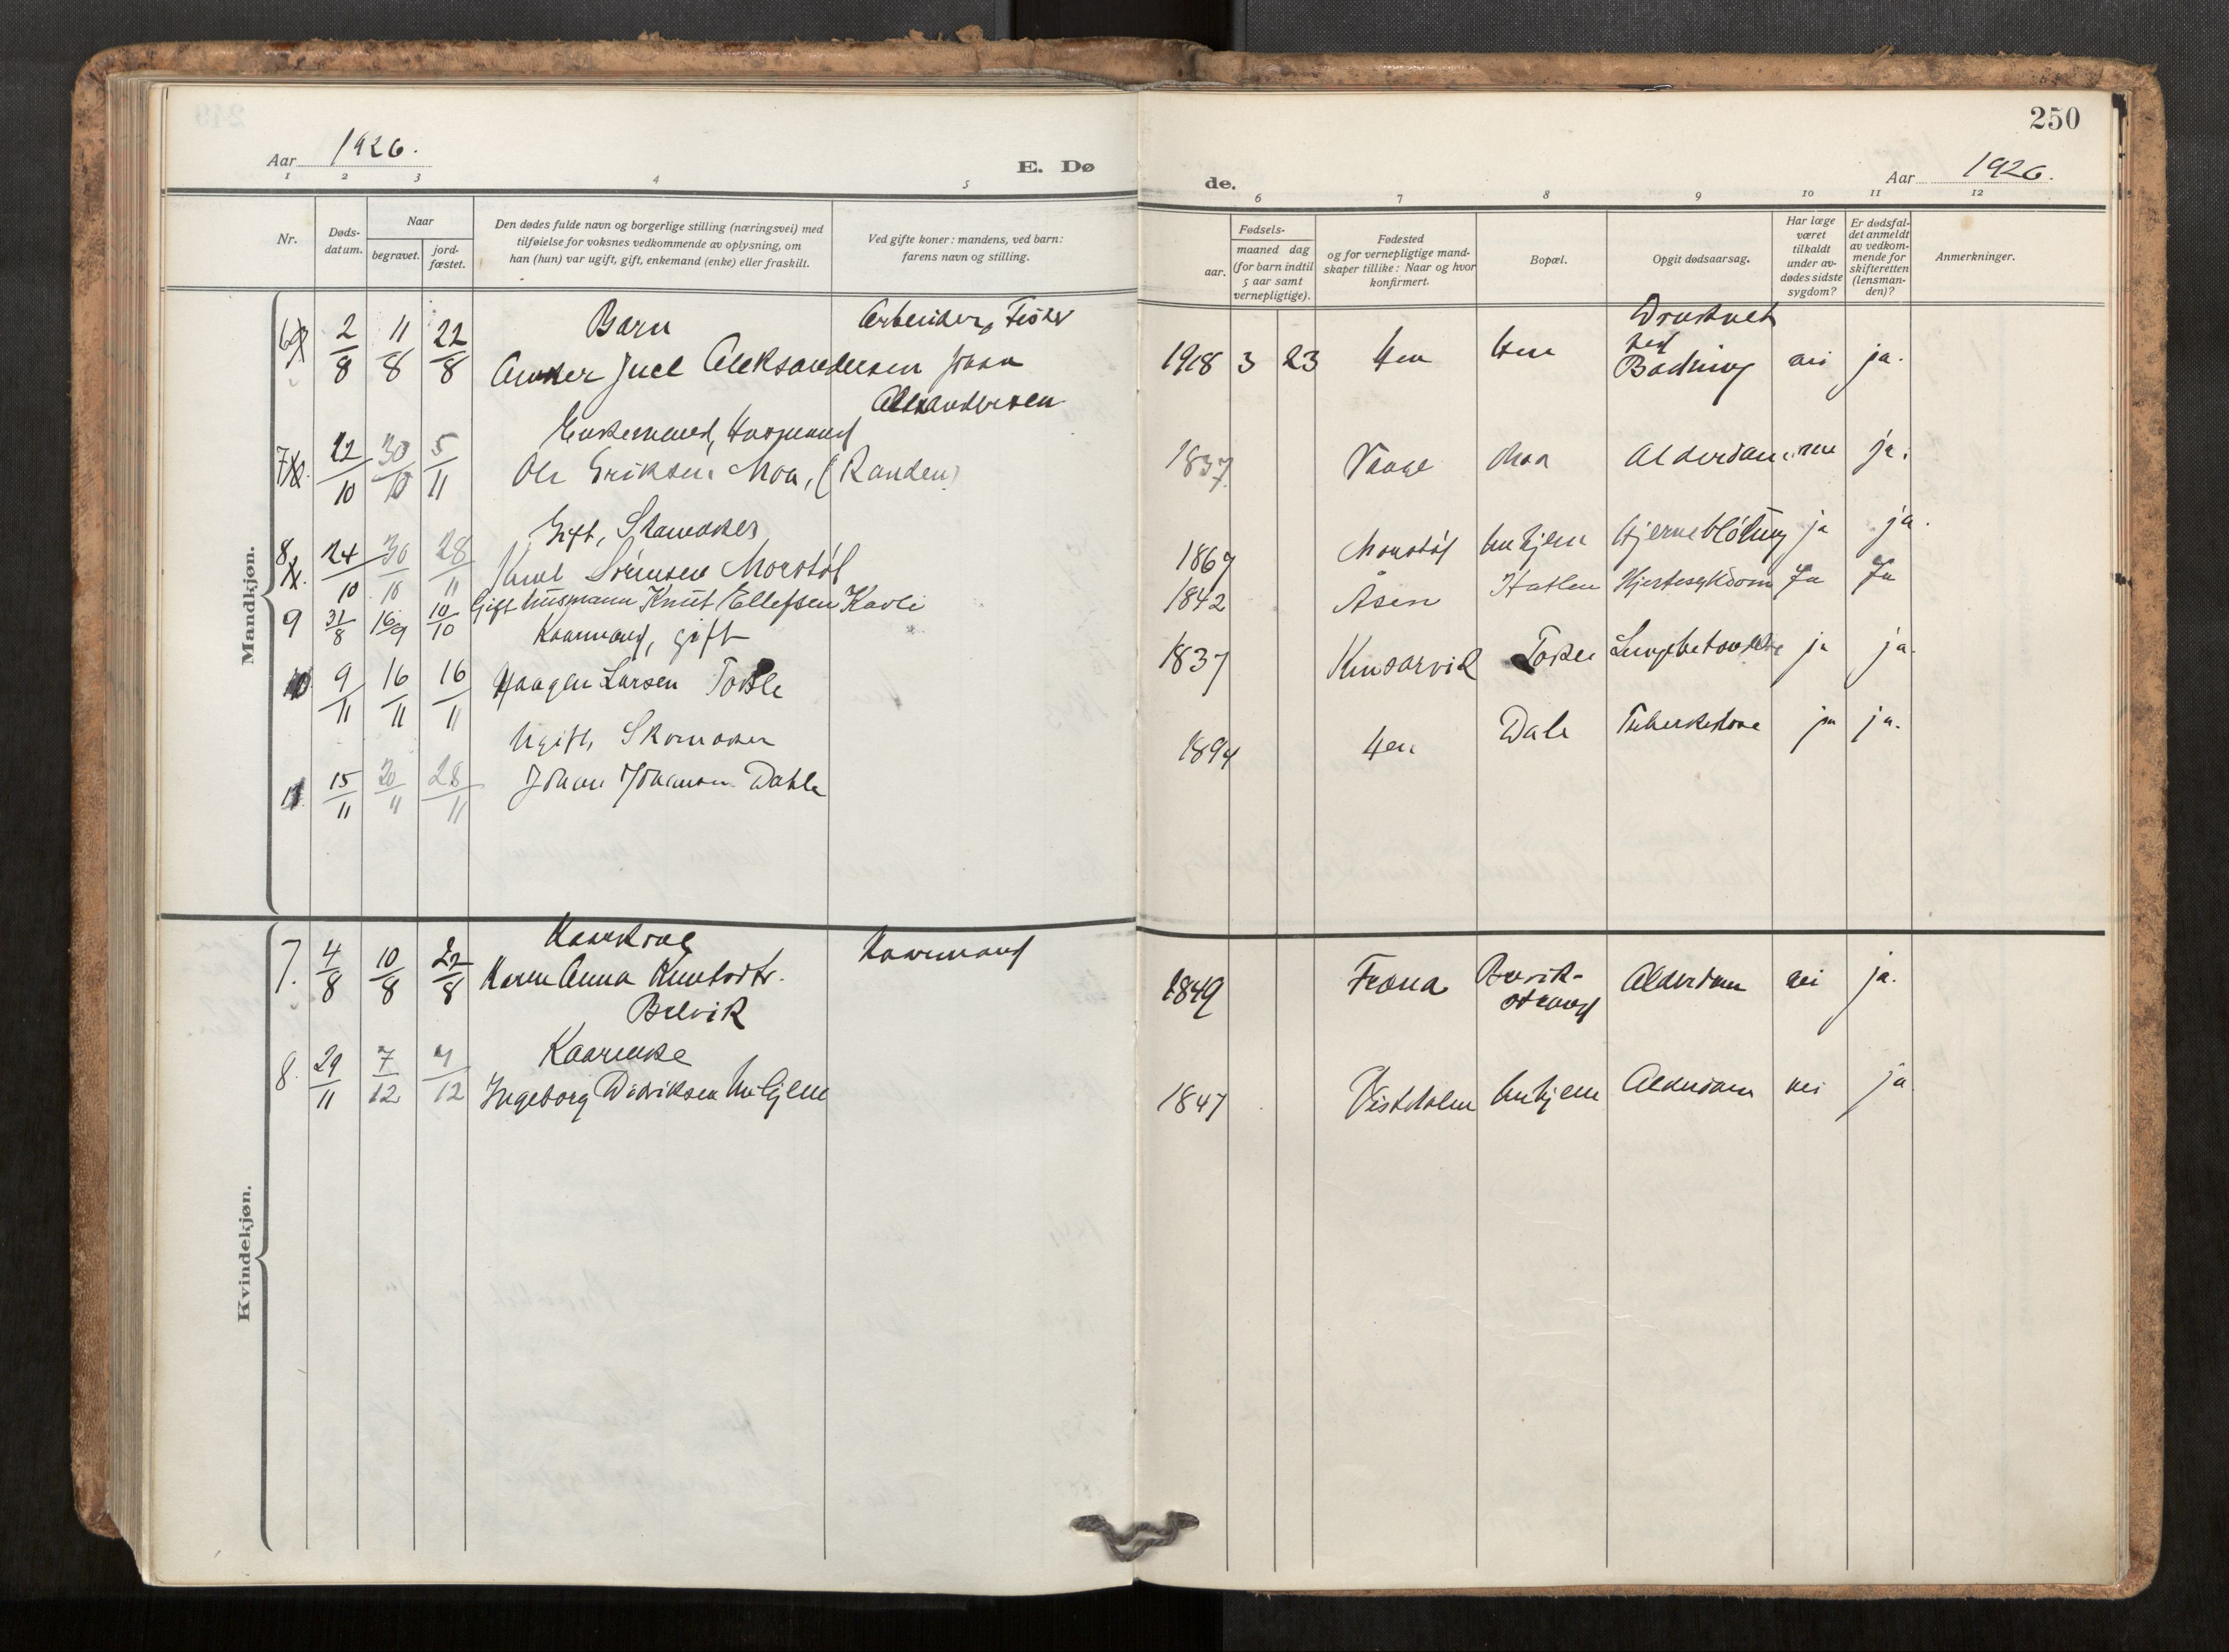 250
Aar 1926.
E. Dø
de.
Aar 1926.
1 2 3 4 5 6 7 8 9 10 11 12
Nr.
Døds-
datum.
Naar
begravet.
jord-
fæstet.
Den dødes fulde navn og borgerlige stilling (næringsvei) med
tilføielse for voksnes vedkommende av oplysning, om
han (hun) var ugift, gift, enkemand (enke) eller fraskilt.
Ved gifte koner: mandens, ved barn:
farens navn og stilling.
Fødsels-
aar.
maaned dag
(for barn indtil
5 aar samt
vernepligtige).
Fødested
og for vernepligtige mand-
skaper tillike: Naar og hvor
konfirmert.
Bopæl.
Opgit dødsaarsag.
Har læge
været
tilkaldt
under av-
dødes sidste
sygdom?
Er dødsfal-
det anmeldt
av vedkom-
mende for
skifteretten
(lensman-
den)?
Anmerkninger.
Mandkjøn.
Barn Arbeider, Fisker Druknet
6 2/8 11/8 22/8 Juel Aleksandersen Johan 1918 3 23 Hen Hen ved Badning nei ja.
Alexandersen
Enkemand, Husmand
7 22/10 30/10 5/11 Ole Eriksen Moa, (Randen) 1837 Vaage Moa Alderdom nei ja.
Gift, Skomaker
8 24/10 30/10 28/11 Knut Sørensen Morstøl 1867 Morstøl Unhjem Hjerneblødning ja ja.
9 31/8 16/9 10/10 Gift husmann Knut Ellefsen Kavli 1842 Åsen Hatlen Hjertesykdom Ja Ja
Kaarmand, gift
10 9/11 16/11 16/11 Haagen Larsen Tokle 1837 Kinsarvik Tokle Lungebetændelse ja ja.
Ugift, Skomaker
11 15/11 20/11 28/11 Johan Johansen Dahle 1894 Hen Dale Tuberkulose ja ja.
Kvindekjøn.
Kaarkone Kaarmand
7. 4/8 10/8 22/8 Karen Anna Knutsdtr. 1849 Fræna Alderdom nei ja.
Kaarenke
8. 29/11 7/12 7/12 Ingeborg Didriksen Unhjem 1847 Unhjem Alderdom nei ja